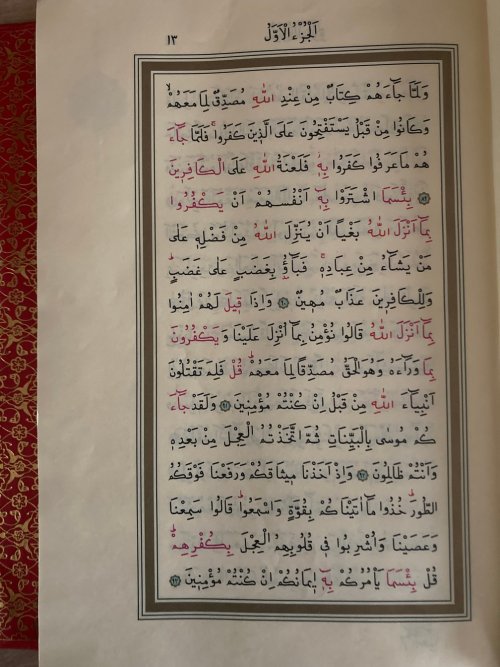 اَلْجُزْءُ الْاَوَّلُ ١٣
وَلَمَّا جَٓاءَهُمْ كِتَابٌ مِنْ عِنْدِ اللّٰهِ مُصَدِّقٌ لِمَا مَعَهُمْۙ
وَكَانُوا مِنْ قَبْلُ يَسْتَفْتِحُونَ عَلَى الَّذ۪ينَ كَفَرُواۚ فَلَمَّا جَٓاءَ
هُمْ مَا عَرَفُوا كَفَرُوا بِه۪ۘ فَلَعْنَةُ اللّٰهِ عَلَى الْكَافِر۪ينَ
﴿٨٩﴾ بِئْسَمَا اشْتَرَوْا بِه۪ٓ اَنْفُسَهُمْ اَنْ يَكْفُرُوا
بِمَٓا اَنْزَلَ اللّٰهُ بَغْيًا اَنْ يُنَزِّلَ اللّٰهُ مِنْ فَضْلِه۪ عَلٰى
مَنْ يَشَٓاءُ مِنْ عِبَادِه۪ۚ فَبَٓاؤُ۫ بِغَضَبٍ عَلٰى غَضَبٍۜ
وَلِلْكَافِر۪ينَ عَذَابٌ مُه۪ينٌ ﴿٩٠﴾ وَاِذَا ق۪يلَ لَهُمْ اٰمِنُوا
بِمَٓا اَنْزَلَ اللّٰهُ قَالُوا نُؤْمِنُ بِمَٓا اُنْزِلَ عَلَيْنَا وَيَكْفُرُونَ
بِمَا وَرَٓاءَهُ وَهُوَ الْحَقُّ مُصَدِّقًا لِمَا مَعَهُمْۜ قُلْ فَلِمَ تَقْتُلُونَ
اَنْبِيَٓاءَ اللّٰهِ مِنْ قَبْلُ اِنْ كُنْتُمْ مُؤْمِن۪ينَ ﴿٩١﴾ وَلَقَدْ جَٓاءَ
كُمْ مُوسٰى بِالْبَيِّنَاتِ ثُمَّ اتَّخَذْتُمُ الْعِجْلَ مِنْ بَعْدِه۪
وَاَنْتُمْ ظَالِمُونَ ﴿٩٢﴾ وَاِذْ اَخَذْنَا م۪يثَاقَكُمْ وَرَفَعْنَا فَوْقَكُمُ
الطُّورَۜ خُذُوا مَٓا اٰتَيْنَاكُمْ بِقُوَّةٍ وَاسْمَعُواۜ قَالُوا سَمِعْنَا
وَعَصَيْنَا وَاُشْرِبُوا ف۪ي قُلُوبِهِمُ الْعِجْلَ بِكُفْرِهِمْۜ
قُلْ بِئْسَمَا يَأْمُرُكُمْ بِه۪ٓ ا۪يمَانُكُمْ اِنْ كُنْتُمْ مُؤْمِن۪ينَ ﴿٩٣﴾